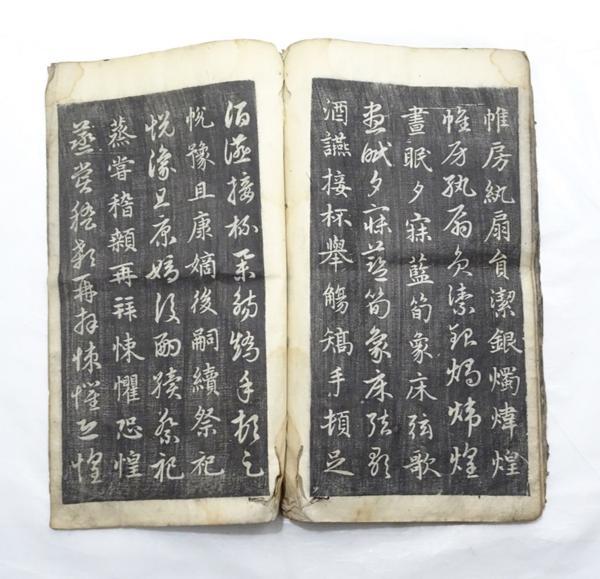 帷房紈扇員潔銀燭煒煌
帷房紈扇員潔銀燭煒煌
晝眠夕寐藍筍象床弦歌
晝眠夕寐藍筍象床弦歌
酒讌接杯舉觴矯手頓足
酒讌接杯舉觴矯手頓足
悅豫且康嫡後嗣續祭祀
悅豫且康嫡後嗣續祭祀
蒸嘗稽顙再拜悚懼恐惶
蒸嘗稽顙再拜悚懼恐惶